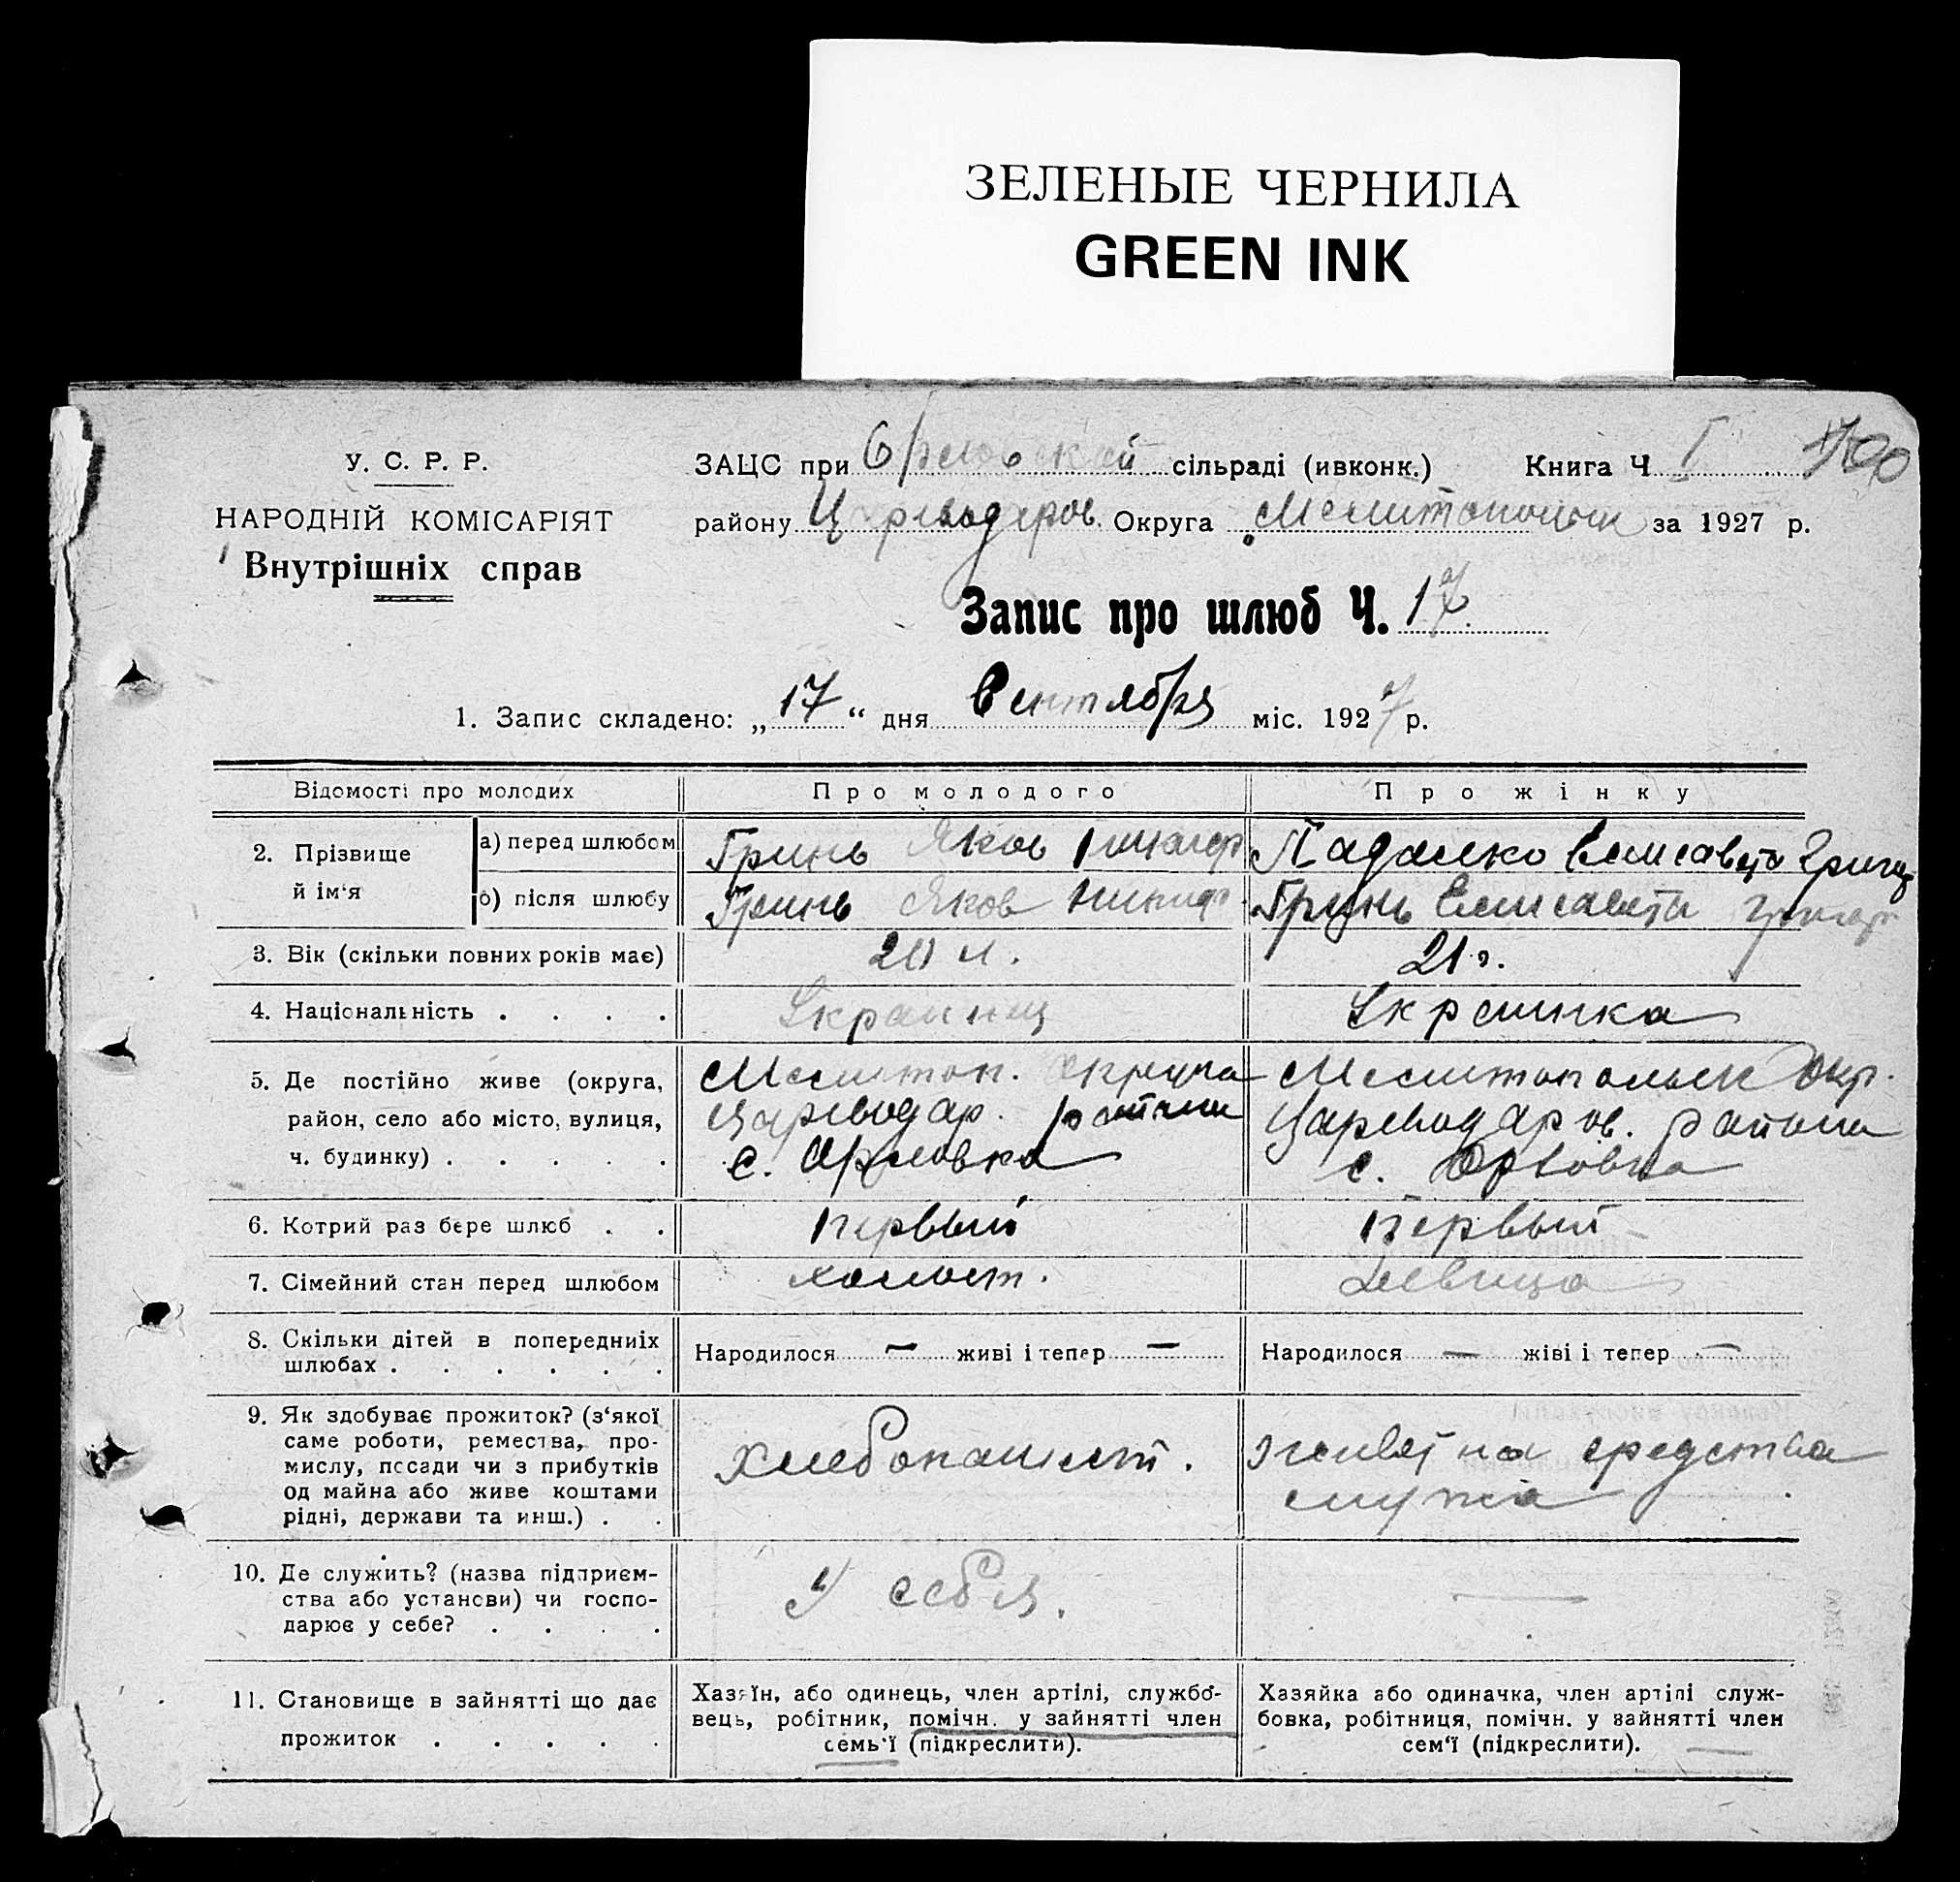 ЗЕЛЕНЫЕ ЧЕРНИЛА
GREEN INK
У. С. Р. Р.
НАРОДНІЙ КОМІСАРІЯТ
Внутрішніх справ
ЗАЦС при Орловской сільраді (ивконк.) Книга Ч I
району Цареводаров. Округа Мелитопольск за 1927 р.
Запис про шлюб Ч. 17
1. Запис складено: „17“ дня Сентября міс. 1927 р.
Відомості про молодих Про молодого Про жінку
2. Прізвище й ім‘я
а) перед шлюбом Гринь Яков Падалко Елисавета Григ
б) після шлюбу Гринь Яков Никиф Гринь Елисавета Григор
3. Вік (скільки повних років має) 20 л. 21 г.
4. Національність . . . . Украинец Украинка
5. Де постійно живе (округа, Мелитоп. округа Мелитопольск Окр.
район, село або місто, вулиця, Цареводар. района Цареводаров. района
ч. будинку) . . . . . с. Орловка с. Орловка
6. Котрий раз бере шлюб . . первый первый
7. Сімейний стан перед шлюбом холост. Девица
8. Скільки дітей в попередниіх
шлюбах . . . . . . Народилося — живі і тепер — Народилося — жіві і тепер —
9. Як здобуває прожиток? (з‘якої
саме роботи, ремества, про-
мислу, посади чи з прибутків
од майна або живе коштами
рідні, держави та инш.) . .
Хлебопашест.
живет на средства
мужа
10. Де служить? (назва підприєм-
ства або установи) чи госпо-
дарює у себе? . . . .
У себя.
—
11. Становище в зайнятті що дає
прожиток . . . . .
Хазяїн, або одинець, член артілі, службо-
вець, робітник, помічн. у зайнятті член
семь‘ї (підкреслити).
Хазяйка або одиначка, член артілі служ-
бовка, робітниця, помічн. у зайнятті член
сем‘ї (підкреслити).